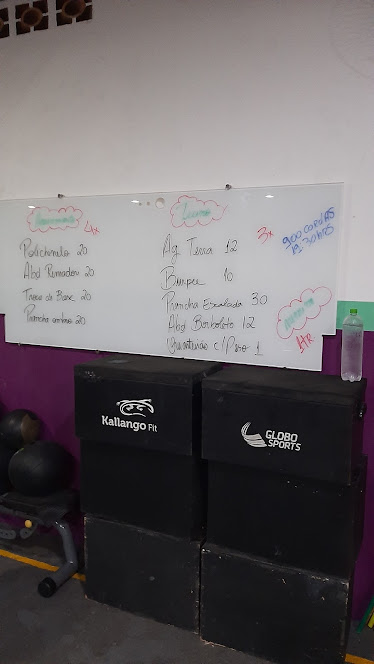 4x
Polichinelo 20
Abd Remador 20
Troca de Base 20
Prancha 20
3x
Ag. Terra 12
Burpee 10
Prancha Escalada 30
Abd Borboleta 12
c/Peso 1
900 CORDAS
19:30 HRS
Kallango Fit
GLOBO
SPORTS